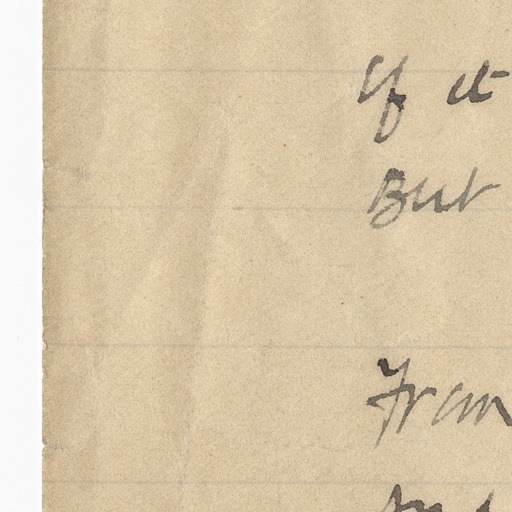 If it
But
From